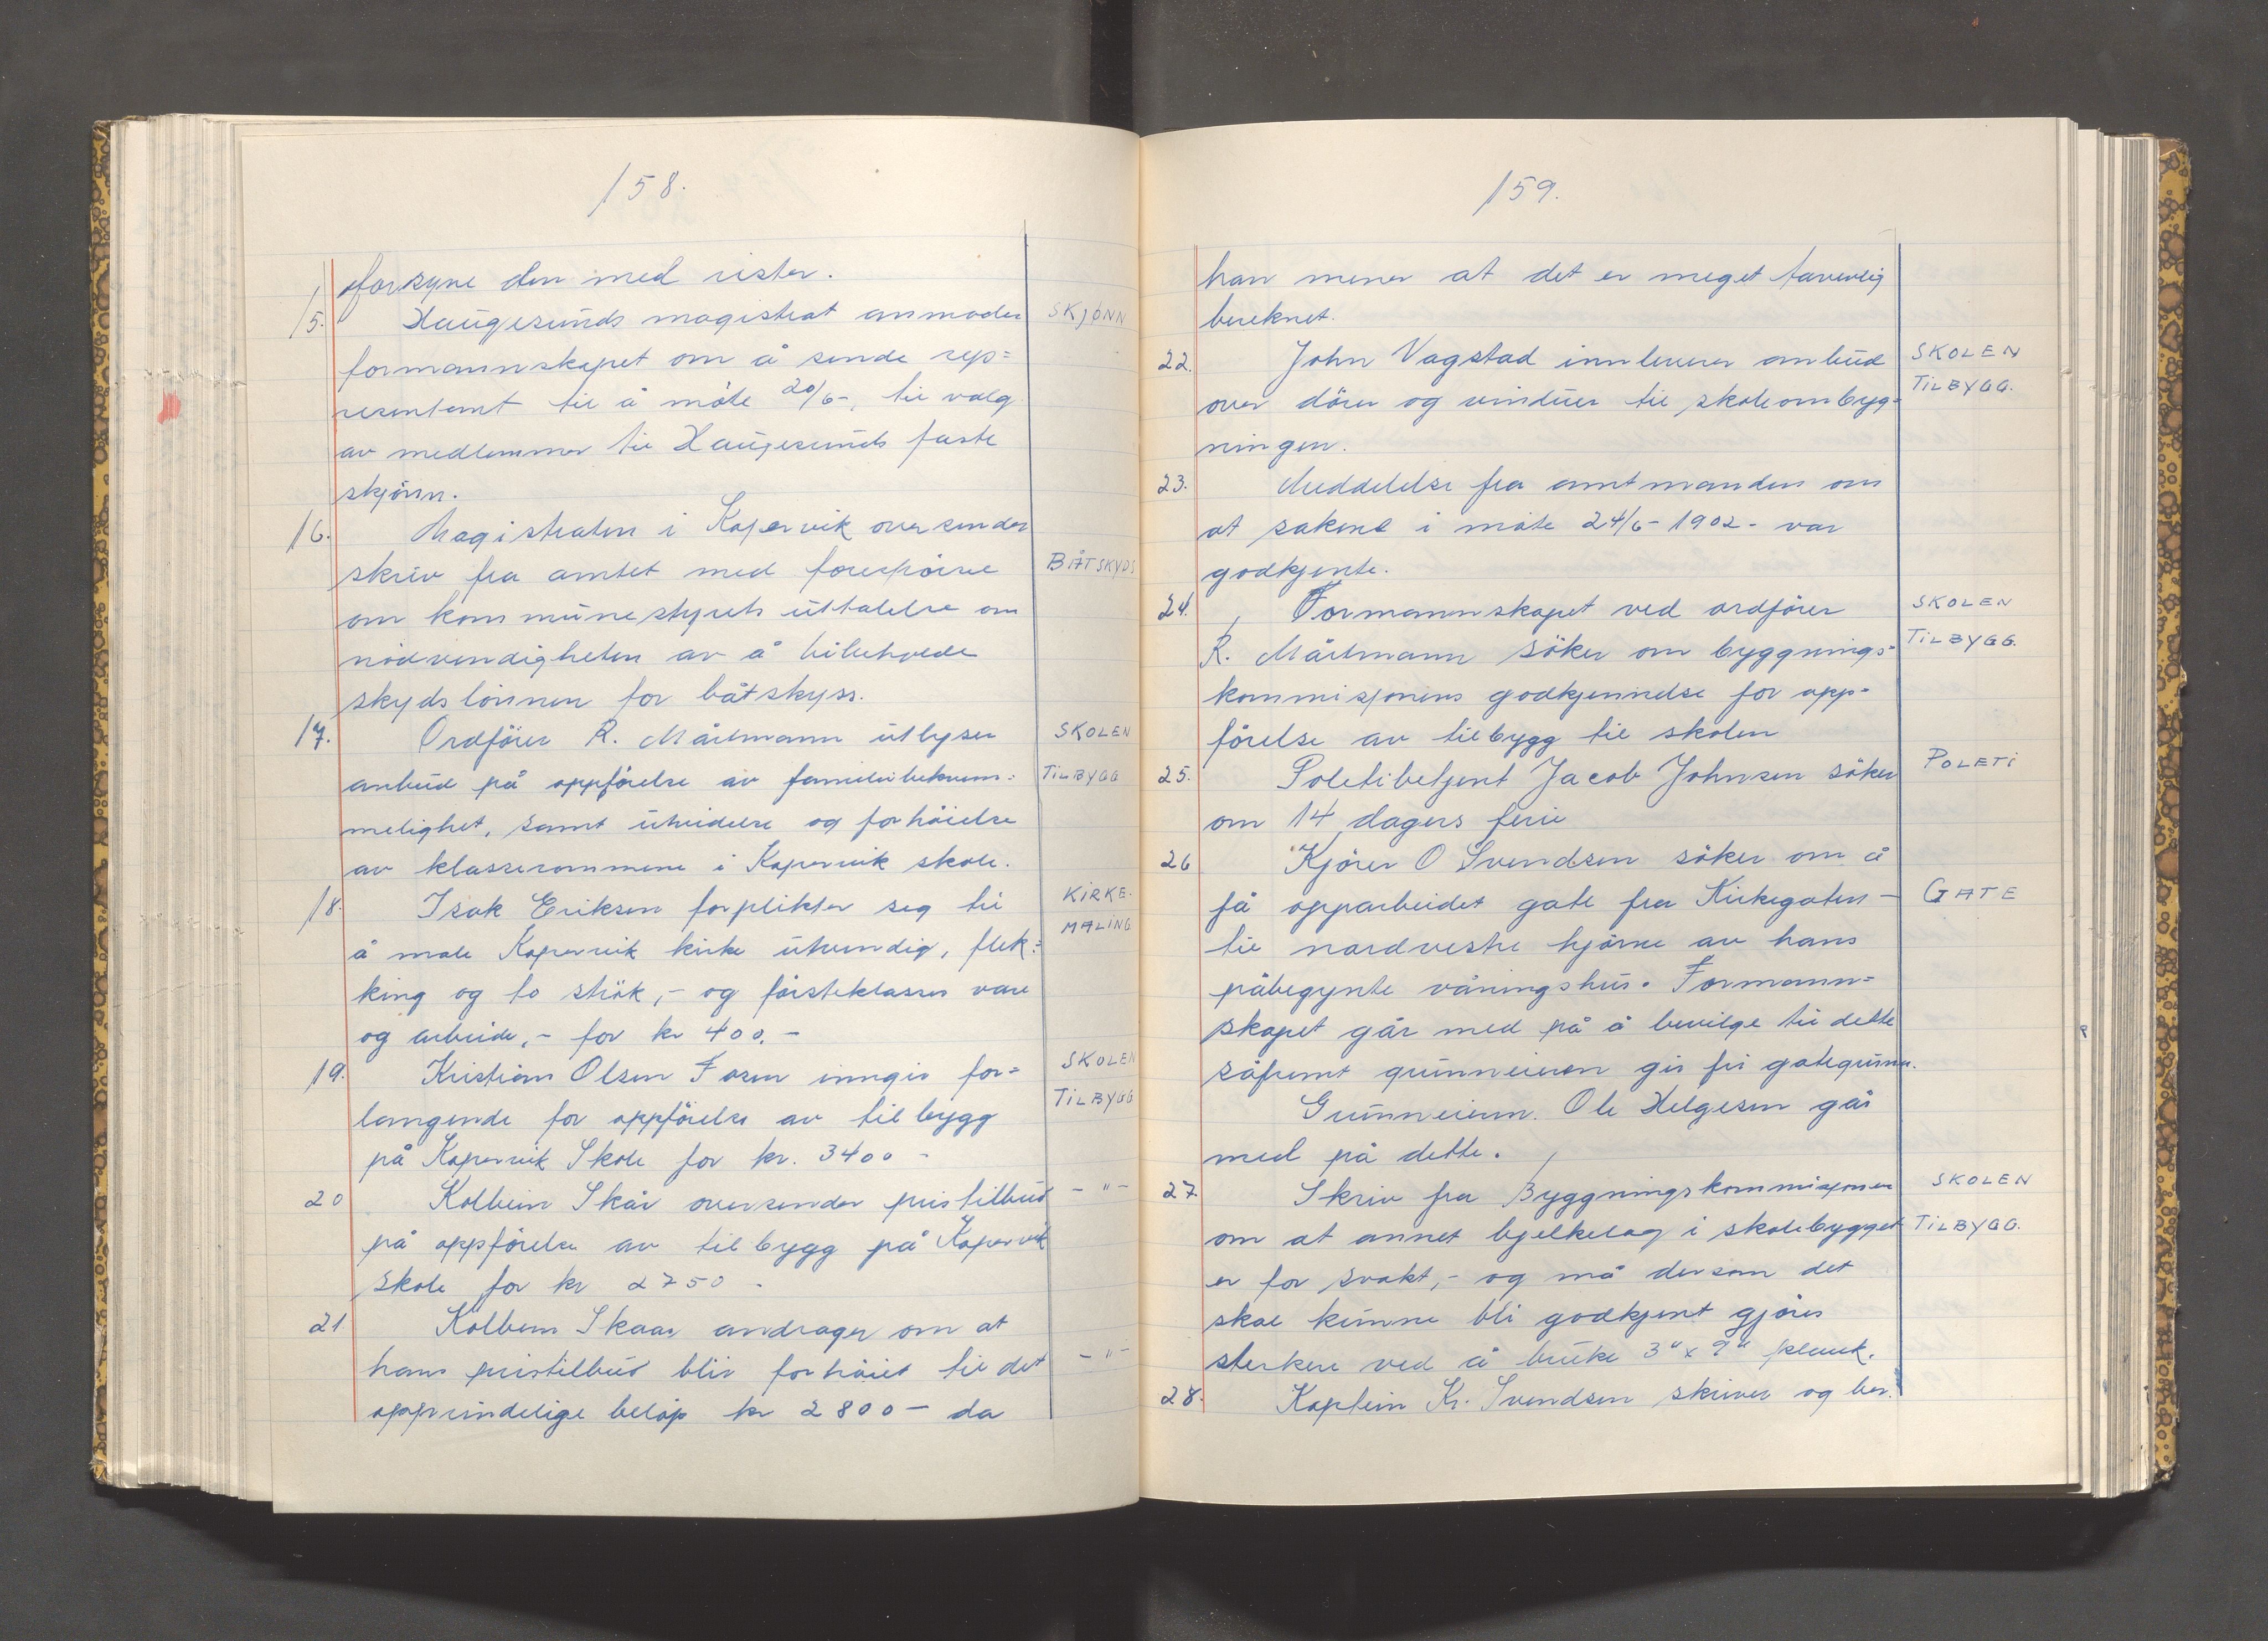 158.
forsyne den med rister.
15. Haugesunds magistrat anmoder SKJØNN
formannskapet om å sende rep=
resentant til å møte 20/6-, til valg
av medlemmer til Haugesunds faste
skjønn.
16. Magistraten i Kopervik oversender
skriv fra amtet med forespörsel BÅTSKYDS
om kommunestyrets uttalelse om
nödvendigheten av å bibeholde
skydslönnen for båtskyss.
17. Ordförer R. Mårtmann utlyser SKOLEN
anbud på oppförelse av familiebekvem= TILBYGG
melighet, samt utvidelse og forhöielse
av klasserommene i Kopervik skole.
18. Isak Eriksen forplikter seg til KIRKE-
å male Kopervik kirke utvendig, flek= MALING
king og to strök,- og försteklasses vare
og arbeide,- for kr 400.-
19. Kristian Olsen Fosen inngir for= SKOLEN
langende for oppförelse av tilbygg TILBYGG
på Kopervik Skole for kr. 3400 -
20 Kolbein Skår oversender pristilbud - " -
på oppförelse av tilbygg på Kopervik
skole for kr 2750 -
21 Kolbein Skaar andrager om at
hans pristilbud blir forhöiet til det - " -
opprindelige belöp kr 2800 - da
159.
han mener at det er meget tarvelig
bereknet.
22. John Vagstad innleverer anbud SKOLEN
over dörer og vinduer til skoleombyg= TILBYGG.
ningen.
23. Meddelelse fra amtmanden om
at sakene i möte 24/6 - 1902 - var
godkjente.
24. Formannskapet ved ordförer SKOLEN
R. Mårtmann söker om byggnings= TILBYGG.
kommisjonens godkjennelse for opp=
förelse av tilbygg til skolen
25. Poletibetjent Jacob Johnsen söker POLETI
om 14 dagers ferie
26 Kjörer O Svendsen söker om å
få opparbeidet gate fra Kirkegaten - GATE
til nordvestre hjörne av hans
påbegynte våningshus. Formann=
skapet går med på å bevilge til dette
såfremt grunneieren gir fri gategrunn.
Grunneieren. Ole Helgesen går
med på dette.
27 Skriv fra Byggningskommisjonen SKOLEN
om at annet bjelkelag i skolebygget TILBYGG.
er for svakt,- og må dersom det
skal kunne bli godkjent gjöres
sterkere ved å bruke 3" x 9" plank.
28. Kaptein Kr. Svendsen skriver og ber.